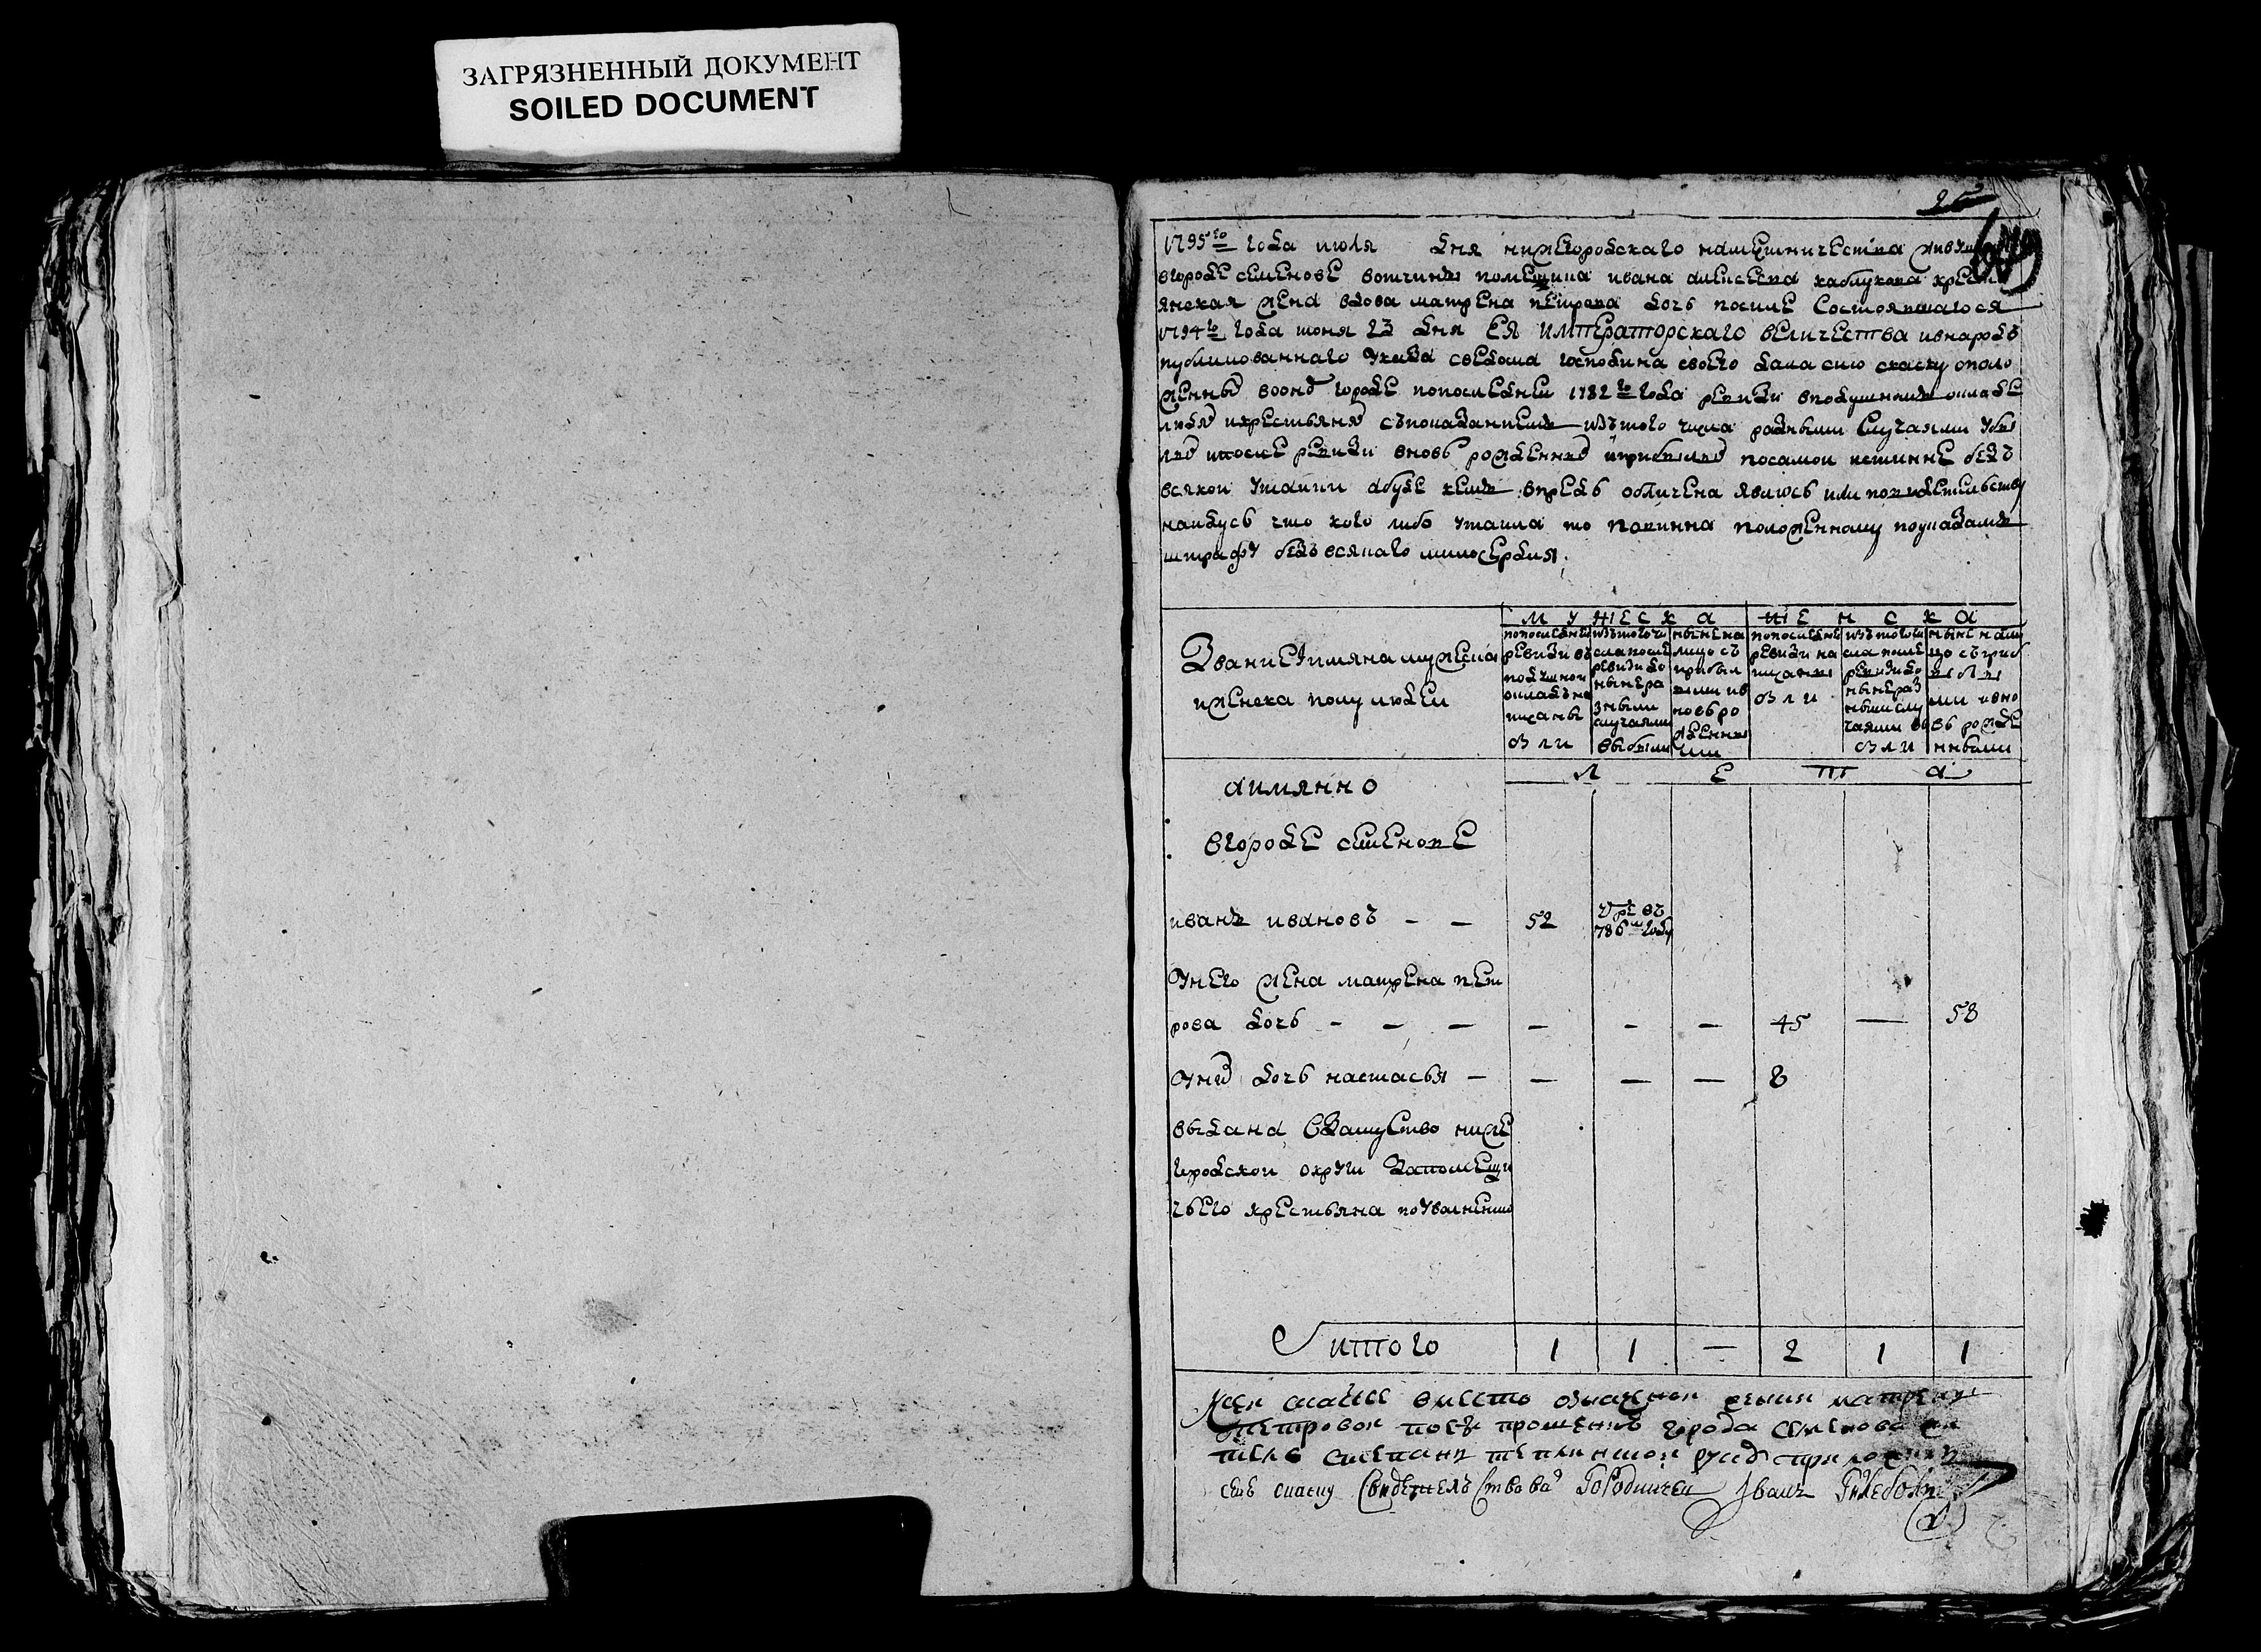 ЗАГРЯЗНЕННЫЙ ДОКУМЕНТ
SOILED DOCUMENT
26
1795го года июля дня нижегородскаго намешничества
вгороде семенове вотчины помещика ивана алексеева каблукова кресть
янская жена вдова матрена петрова дочь посиле состоявшагося
1794го года июня 23 дня ЕЯ ИМПЕРАТОРСКАГО ВЕЛИЧЕСТВА ивнародъ
публикованнаго указа сведома господина своего дала сию скаску ополо
женных воонд городе попоследнеи 1782го года ревизи вподушномъ окладе
людяд икрестьянд съпоказаниемъ изътого числа разными случаями убы
лыд ипосле ревизи вновь рожденныд иприбылыд посамои истинне безъ
всякои утаики абуде кемъ впредь обличена явлюсь или посвидетельству
наидусь что кого либо утаила то повинна положенному поуказамъ
штрафу безъ всякаго милосердия.
МУЖЕСКА ЖЕНСКА
Звание иимяна мужеска
иженска полу людеи
попоследнеи ревизи въ подушнои окладъ написаны были
изътогочисла после ревизи до ныне разными случаями выбыли
ныне налицо съ прибылыми ивновь рожденными
попоследнеи ревизи написаны были
изътогочисла после ревизи до ныне разными случаями выбыли
ныне налицо съприбылыми ивновь рожденными
ЛЕТА
аимянно
вгороде семенове
иванъ ивановъ – – 52 умре въ
786м году
Унего жена матрена пет
рова дочь – – – – – – 45 — 58
Унид дочь настасья – – – – 8
выдана взамуство ниже
городскои округи запомещи
чьего крестьяна поуволнению
итого 1 1 — 2 1 1
Ксеи скаске вместо означенои матрены
петровои поея прошению города семенова
степанъ руку приложилъ
сию скаску свидетельствовад Городничеи Иванъ